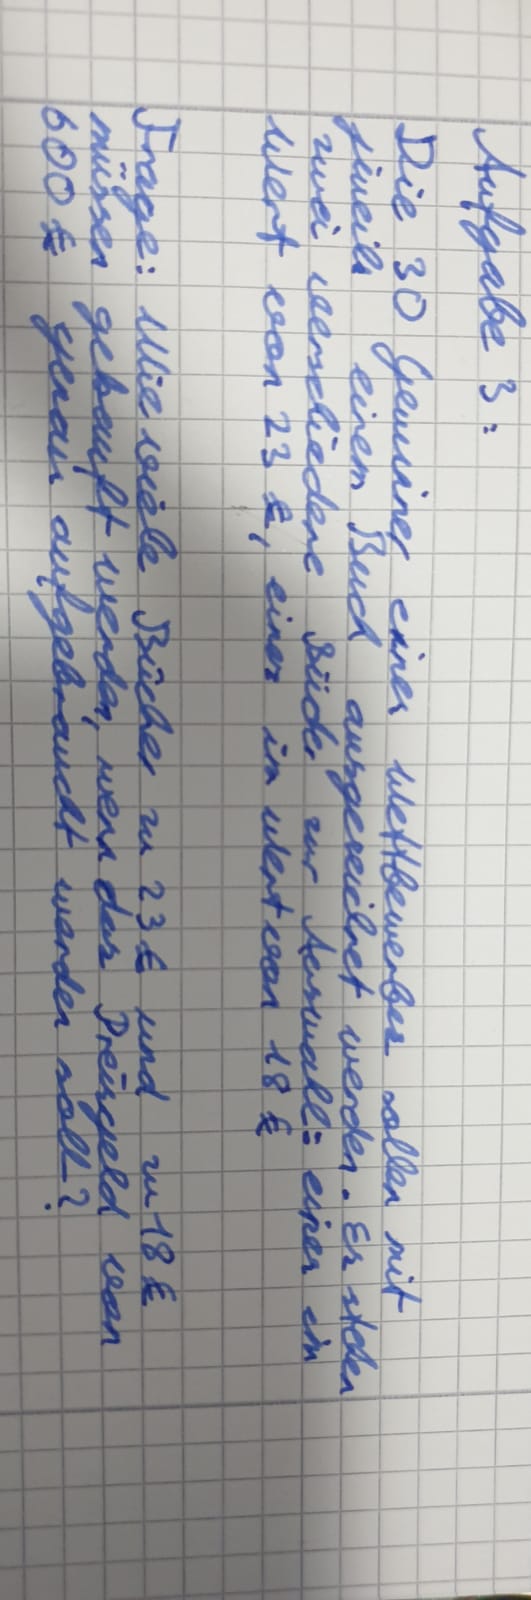 Aufgabe 3:
Die 30 Gewinner eines Wettbewerbes sollen mit
jeweils einem Buch ausgezeichnet werden. Es stehen
zwei verschiedene Bücher zur Auswahl: eines im
Wert von 23 €, eines im Wert von 18 €
Frage: Wie viele Bücher zu 23 € und zu 18 €
müssen gekauft werden, wenn das Preisgeld von
600 € genau aufgebraucht werden soll?